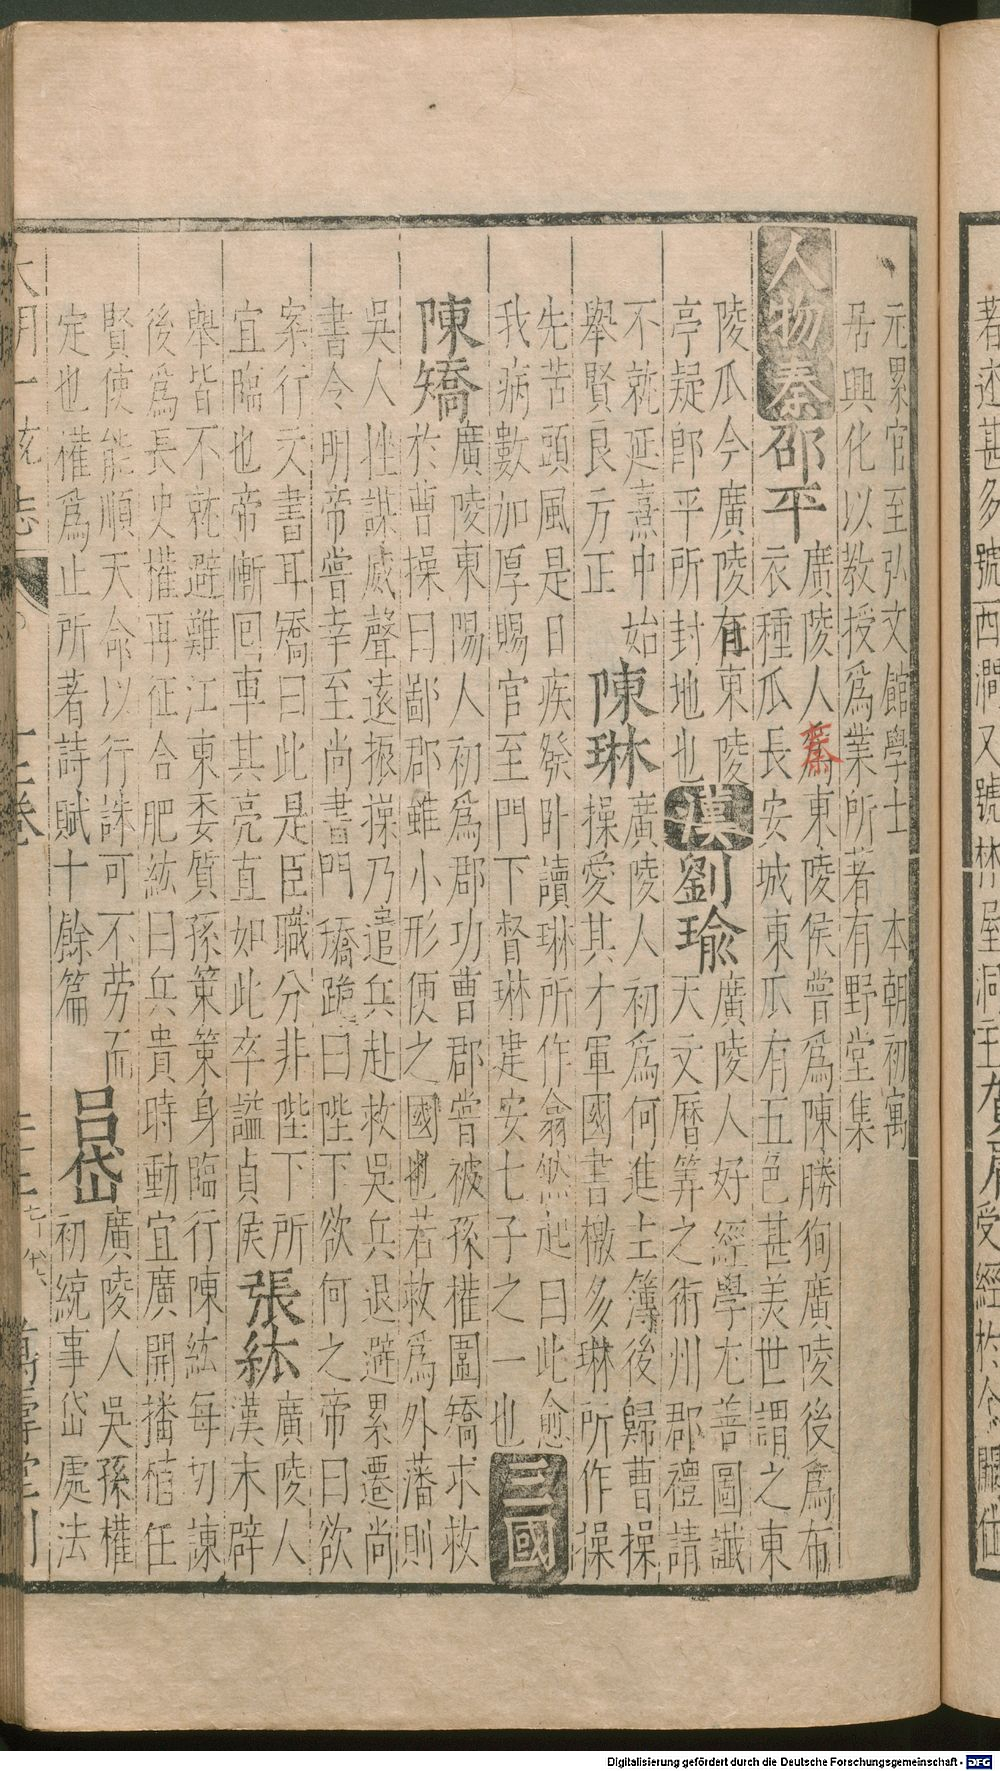 元累官至弘文館學士　本朝初寓
居興化以教授爲業所著有野堂集
人物秦邵平
廣陵人秦東陵侯嘗爲陳勝徇廣陵後爲布
衣種瓜長安城東瓜有五色甚美世謂之東
陵瓜今廣陵有東陵
亭疑卽平所封地也
漢劉瑜
廣陵人好經學尤善圖讖
天文曆筭之術州郡禮請
不就延熹中始
舉賢良方正
陳琳
廣陵人初爲何進主簿後歸曹操
操愛其才軍國書檄多琳所作操
先苦頭風是日疾發卧讀琳所作翕然起曰此愈
我病數加厚賜官至門下督琳建安七子之一也
三國
陳矯
廣陵東陽人初爲郡功曹郡嘗被孫權圍矯求救
於曹操曰鄙郡雖小形便之國也若救爲外藩則
吳人挫謀威聲遠振操乃遣兵赴救吳兵退遷累遷尚
書令明帝嘗幸至尚書門矯跪曰陛下欲何之帝曰欲
案行文書耳矯曰此是臣職分非陛下所
宜臨也帝慚回車其亮直如此卒謚貞侯
張紘
廣陵人
漢末辟
舉皆不就避難江東委質孫策策身臨行陳紘每切諫
後爲長史權再征合肥紘曰兵貴時動宜廣開播植任
賢使能順天命以行誅可不勞而
定也權爲止所著詩賦十餘篇
呂岱
廣陵人吳孫權
初統事岱處法
大明一統志
著述甚多號西澗又號林屋洞主
受經於
Digitalisierung gefördert durch die Deutsche Forschungsgemeinschaft - DFG